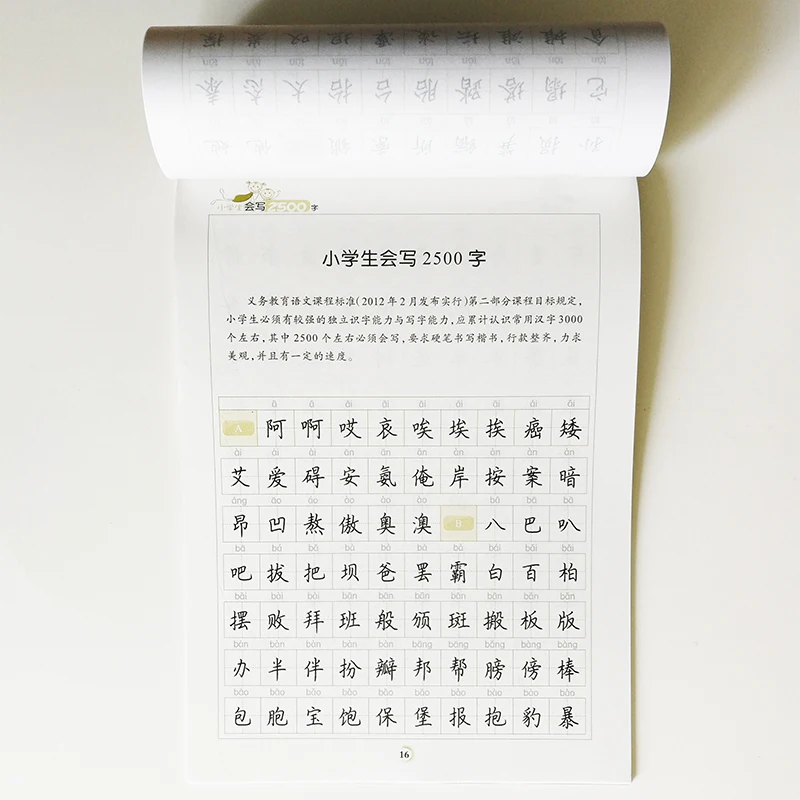 它 塌 塔 踏 胎 台 抬 太 态 泰
小学生会写2500字
小学生会写2500字
义务教育语文课程标准(2012年2月发布实行)第二部分课程目标规定,
小学生必须有较强的独立识字能力与写字能力,应累计认识常用汉字3000
个左右,其中2500个左右必须会写,要求硬笔书写楷书,行款整齐,力求
美观,并且有一定的速度。
A 阿 啊 哎 哀 唉 埃 挨 癌 矮
ài ài ài ān ān ǎn àn àn àn àn
艾 爱 碍 安 氨 俺 岸 按 案 暗
áng āo áo ào ào ào bā bā bā
昂 凹 熬 傲 奥 澳 B 八 巴 叭
bā bá bǎ bà bà bà bà bái bǎi bǎi
吧 拔 把 坝 爸 罢 霸 白 百 柏
bǎi bài bài bān bān bān bān bān bǎn bǎn
摆 败 拜 班 般 颁 斑 搬 板 版
bàn bàn bàn bàn bàn bāng bāng bǎng bàng bàng
办 半 伴 扮 瓣 邦 帮 膀 傍 棒
bāo bāo bǎo bǎo bǎo bǎo bào bào bào bào
包 胞 宝 饱 保 堡 报 抱 豹 暴
16